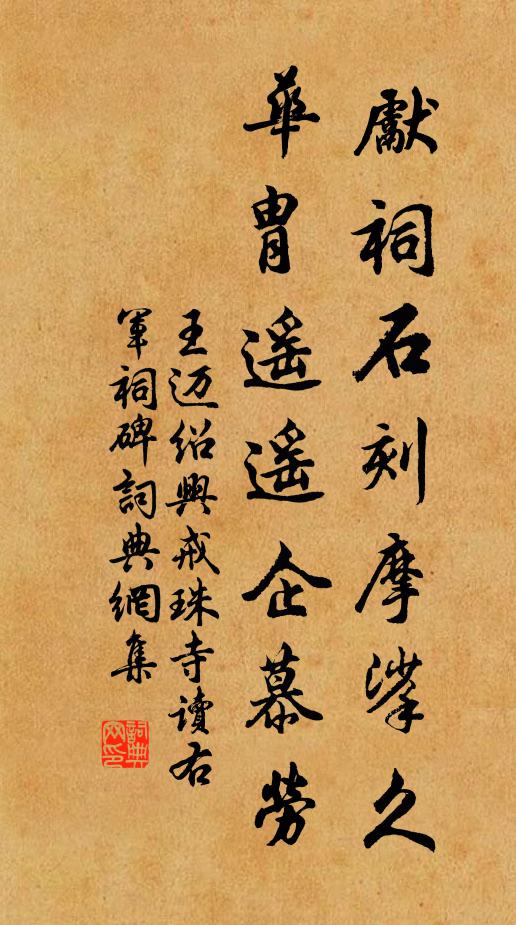 獻祠石刻摩挲久
華胄遥遥企慕勞
王迈紹興戒珠寺讀右
軍祠碑詞典網集
詞典
网印